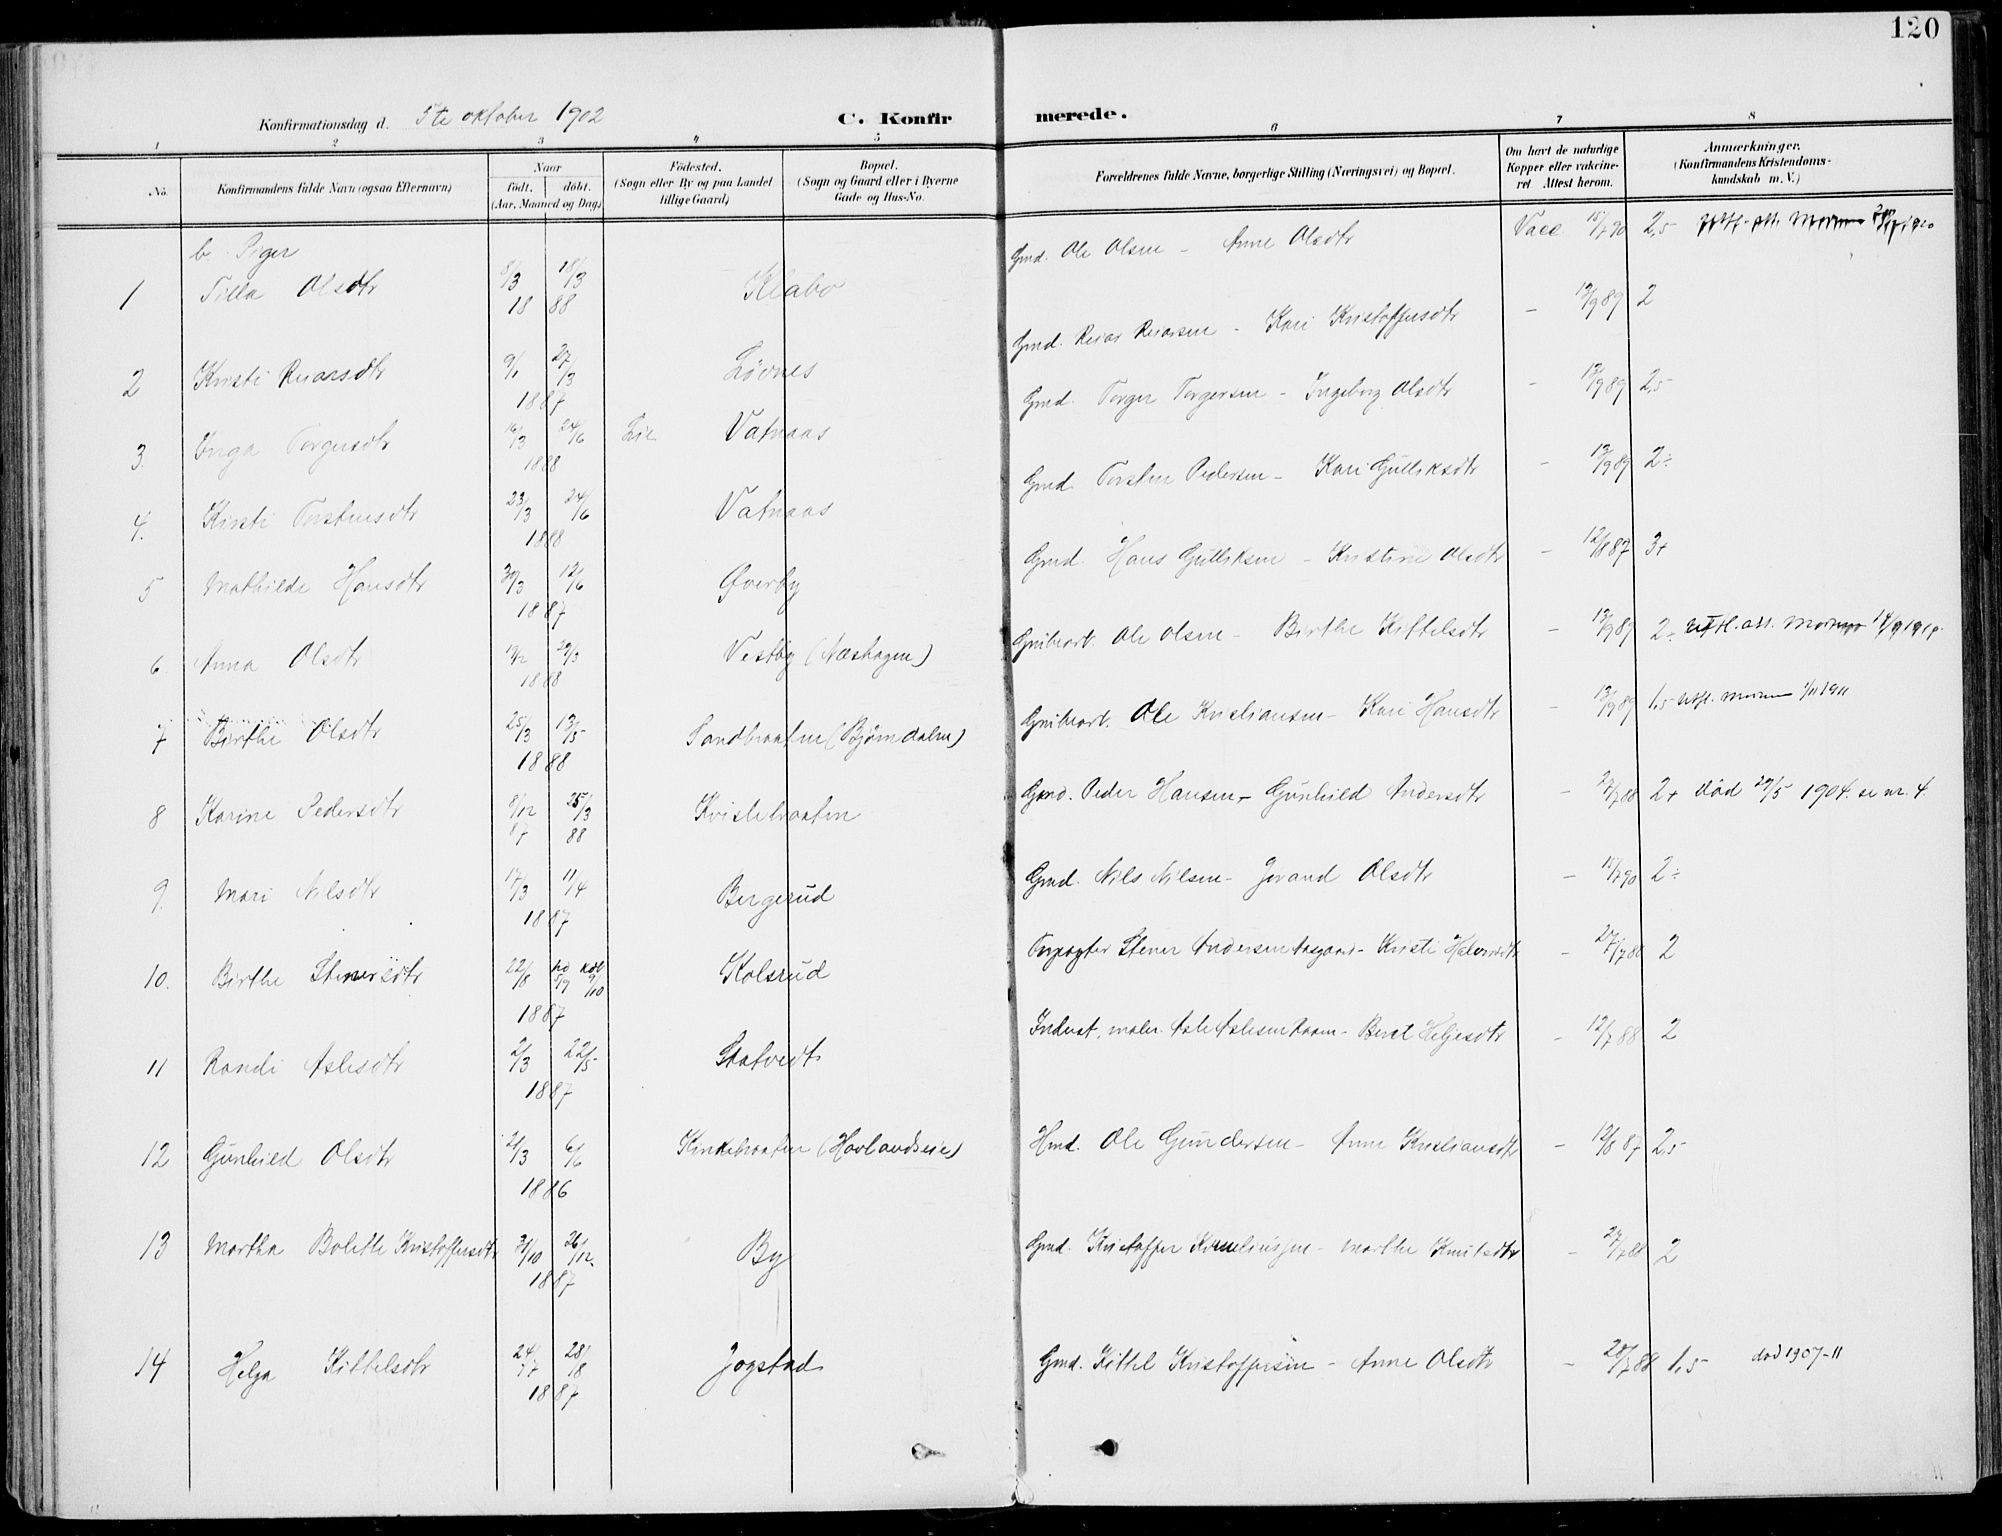 120
Konfirmationsdag d. 5te oktober 1902 C. Konfirmerede.
1 2 3 4 5 6 7 8
No. Konfirmandens fulde Navn (ogsaa Efternavn) Naar født. døbt. (Aar, Maaned og Dag) Fødested. (Sogn eller By og paa Landet tillige Gaard) Bopæl. (Sogn og Gaard eller i Byerne Gade og Hus-No. Forældrenes fulde Navne, borgerlige Stilling (Næringsvei) og Bopæl. Om havt de naturlige Kopper eller vakcineret Attest herom. Anmærkninger. (Konfirmandens Kristendomskundskab m. V.)
b. Piger
1 Tilla Olsdtr 8/3 18/3 1888 Klabo Gmd. Ole Olsen - Anne Olsdtr Vacc 15/7 90 2,5
2 Kristi Reiarsdtr 9/1 27/3 1887 Løvnes Gmd. Reiar Reiarsen - Kari Kristoffersdtr - 13/9 89 2
3. Inga Torgersdtr 16/3 24/6 1888 Lie Vatnaas Gmd. Torger Torgersen - Ingeborg Olsdtr - 13/9 89 2,5
4. Kirsti Torstensdtr 23/3 24/6 1888 Vatnaas Gmd. Torsten Pedersen - Kari Gulliksdtr - 13/9 89 2÷
5 Mathilde Hansdtr 30/3 12/6 1887 Øverby Gmd. Hans Gulliksen - Kristine Olsdtr - 12/8 87 3+
6 Anna Olsdtr 19/2 29/3 1888 Vestby (Næshagen) Grubearb. Ole Olsen - Birthe Kittelsdtr - 13/9 89 2÷
7 Birthe Olsdtr 25/3 13/5 1888 Sandbraaten (Bjørndalen) Grubearb. Ole Kristiansen - Kari Hansdtr - 13/9 89 1,5
8 Karine Pedersdtr 8/12 87 25/3 88 Kvistebraaten Gmd. Peder Hansen - Gunhild Andersdtr - 27/7 88 2+ død 29/5 1904. se nr. 4.
9. Mari Nilsdtr 17/3 11/4 1887 Bergerud Gmd. Nils Nilsen - Jorand Olsdtr - 15/7 90 2÷
10. Birthe Stenersdtr 22/8 hd 5/9 kdb 9/10 1887 Kolsrud Forpagter Stener Andersen Aasgaard - Kristi Halvorsdtr - 27/7 88 2
11 Randi Aslesdtr 2/3 22/5 1887 Statvedt Indust. maler Asle Aslesen Raaen - Berat Helgesdtr - 12/7 88 2
12 Gunhild Olsdtr 21/3 6/6 1886 Kinkebraaten (Hovlandseie) Hmd. Ole Gundersen - Anne Kristiansdtr - 12/8 87 2,5
13 Martha Bolette Kristoffersdtr 31/10 26/12 1887 By Gmd. Kristoffer Korneliussen - Marthe Knutsdtr - 27/7 88 2
14 Helga Kittelsdtr 24/7 28/8 1887 Jogstad Gmd. Kittel Kristoffersen - Anne Olsdtr - 20/7 88 1,5 død 1907-11